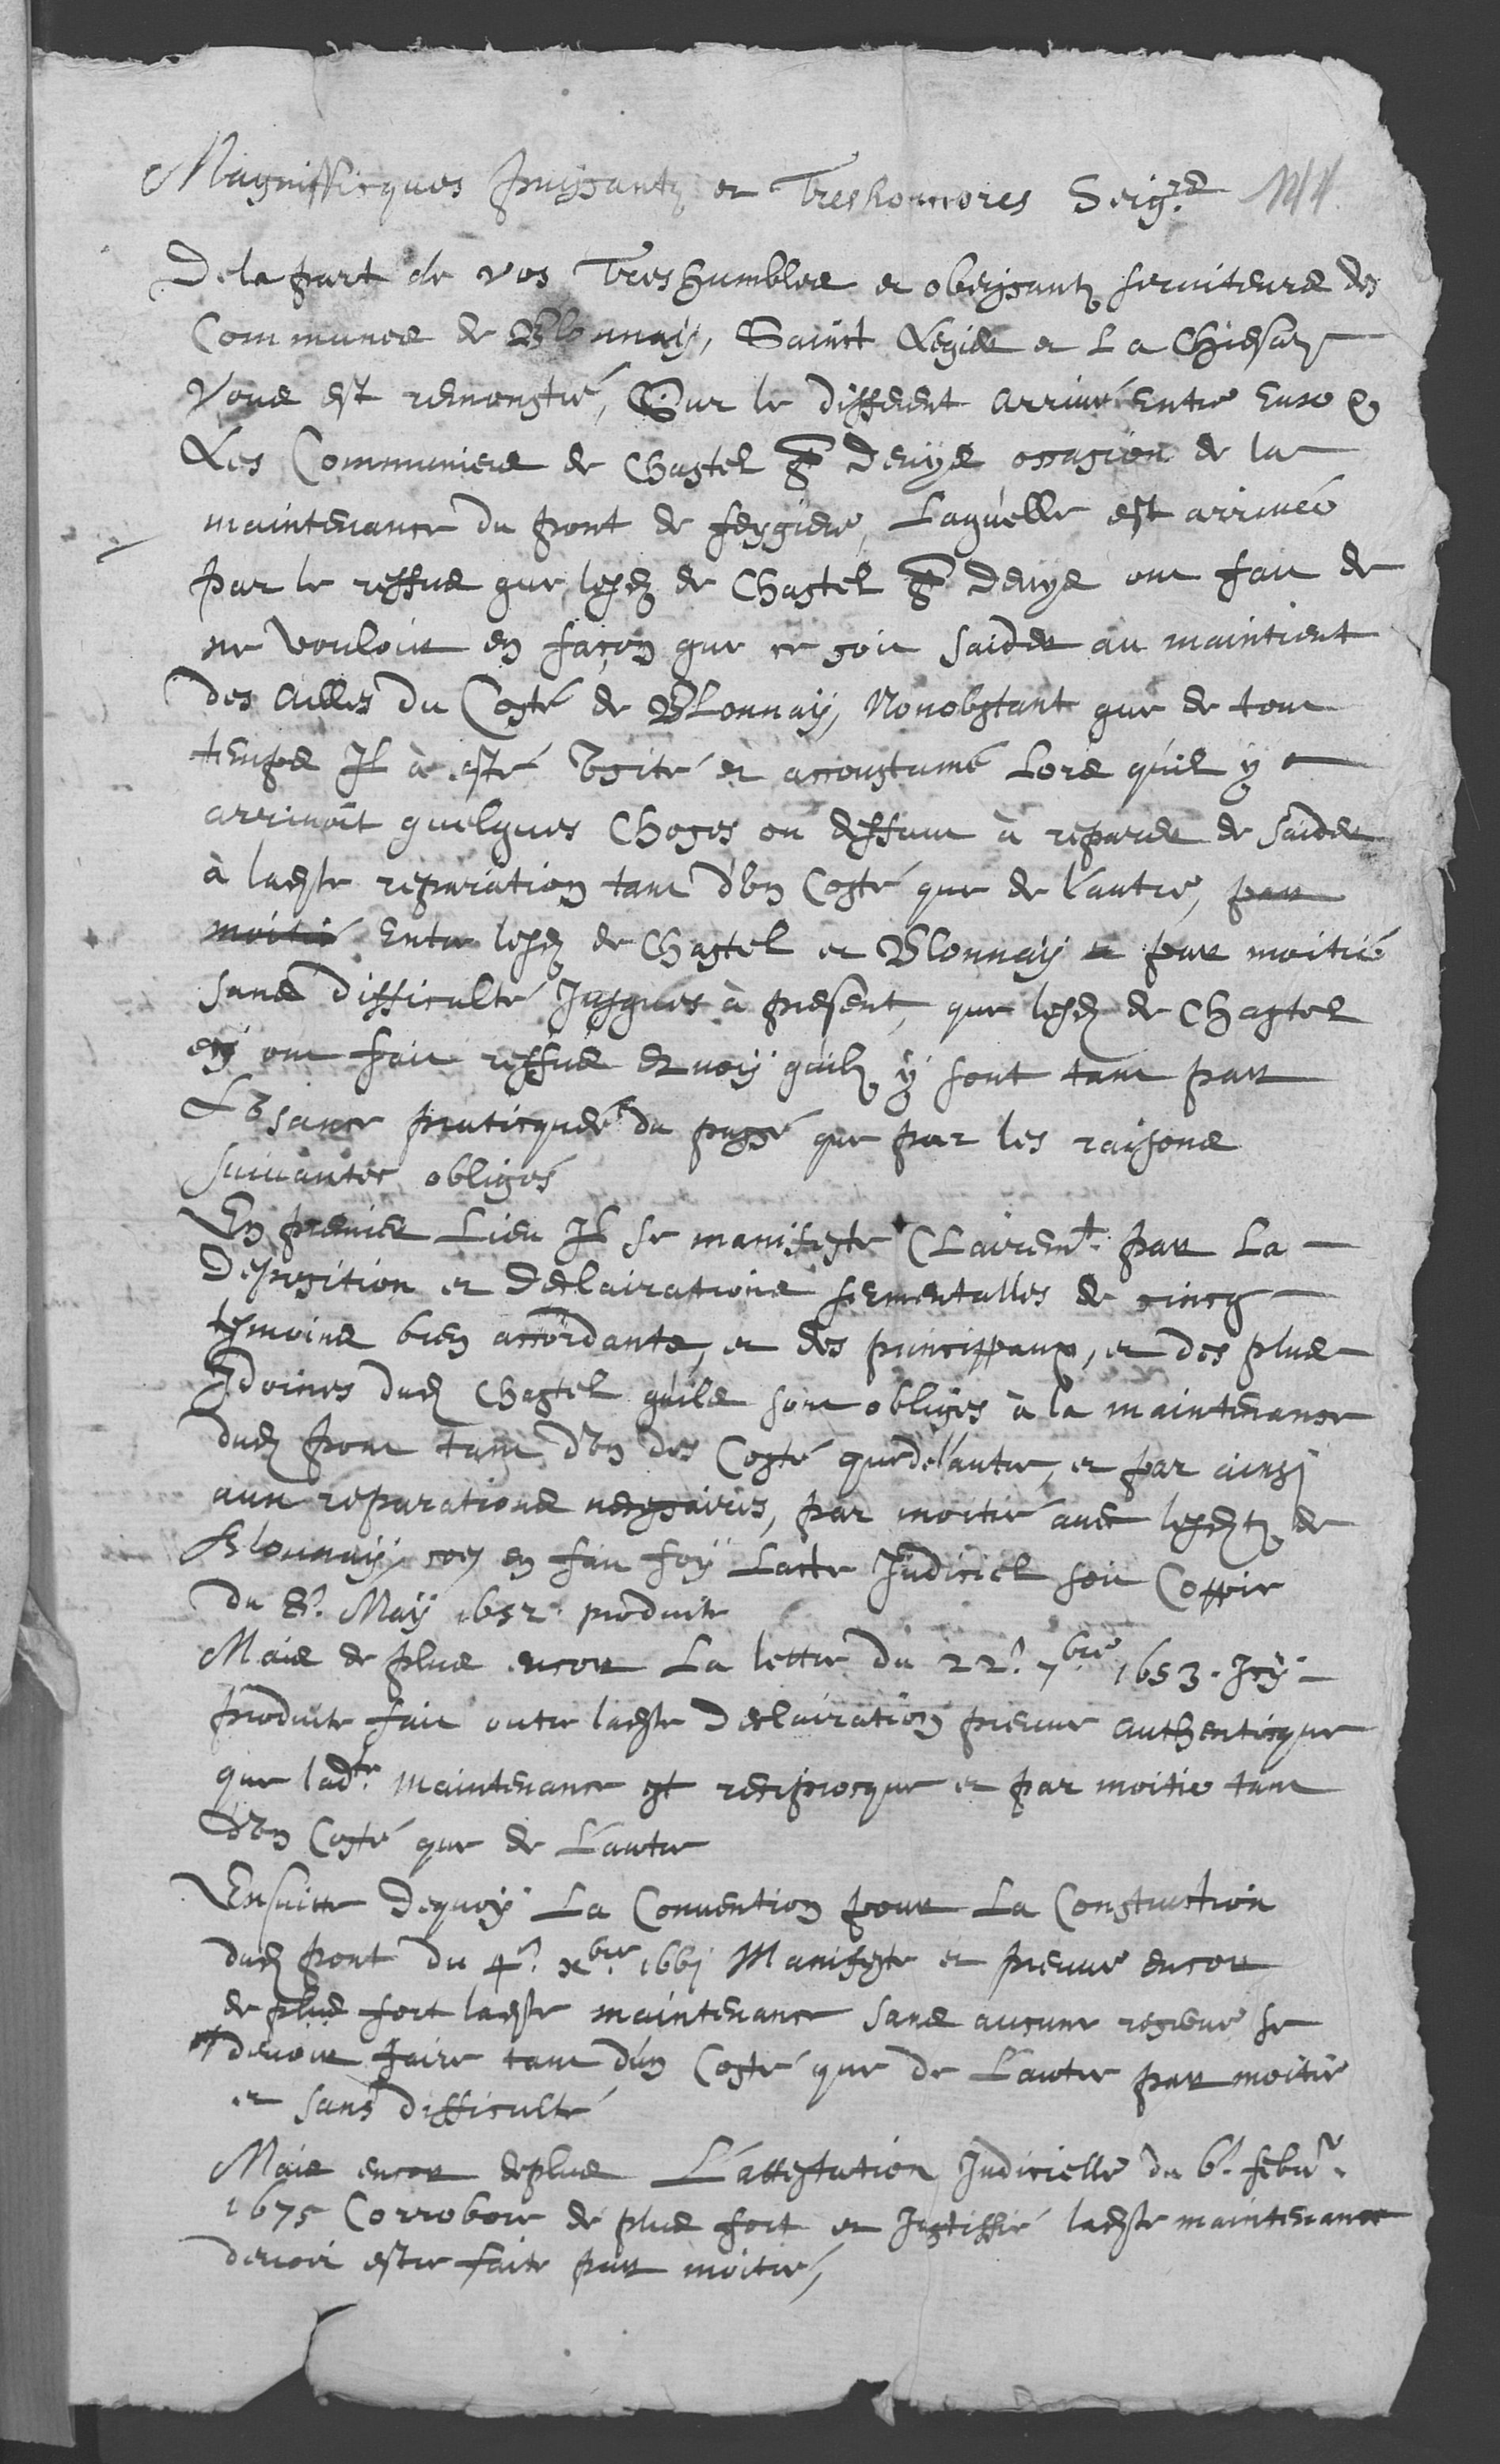 Magnifficques puyssantz et Treshonnorés Seigrs
De la part de vos Treshumbles et obeyssantz seruiteurs des
Communes de Blonnaÿ, Sainct Legier et La Chiesaz
Vous est remonstré, Sur le different arriué Entre Eux et
Les Communiers de Chastel St Denys occasion de la
maintenance du pont de feygiere, Laquelle est arriuée
par le reffus que lesdz de Chastel St Denys ont fait de
ne vouloir en façon que ce soit s'aider au maintient
des ailles du Costé de Blonnaÿ, Nonobstant que de tout
temps Il à esté vsité et accoustumé Lors qu'il y
arriuoit quelques Choses ou deffaut à reparer de s'aider
à ladste reparation tant d'vn Costé que de l'autre, par
moitié Entre lesdz de Chastel et Blonnaÿ et par moitié
sans difficulté Jusques à present, que lesdz de Chastel
en ont fait reffus quoÿ qu'ilz ÿ sont tant par
L'vsance practicquée du passé que par les raisons
suiuantes obligés
En premier Lieu Il se manifeste Clairemt par La
Deposition et Declairations sermentalles de cincq
tesmoins bien accordants, et des princippaux, et des plus
Idoines dudz Chastel qu'ils sont obligés à la maintenance
dudz pont tant d'vn des Costé que de l'autre, et par ainsj
aux reparations necessaires, par moitié auec lesdtz de
Blonnaÿ, en fait foÿ L'acte Judiciel soit Coppie
du 8e. Maÿ 1652 produite
Mais de plus encor La lettre du 22e. 7bre 1653. Icÿ
produite fait outre ladste Declairation preuue authenticque
que ladte. maintenance est reciprocque et par moitié tant
d'vn Costé que de L'autre
Ensuitte dequoÿ La Conuention pour La Construction
dudz pont du 4e. xbre 1661 Manifeste et preuue encor
de plus fort ladste maintenance sans aucune reserue se
deuoir faire tant d'un Costé que de L'autre par moitié
et sans difficulté
Mais encor deplus L'attestation Judicielle du 6e. febur.
1675 Corrobore de plus fort et Justiffie ladste maintenance
deuoir estre faite par moitié,